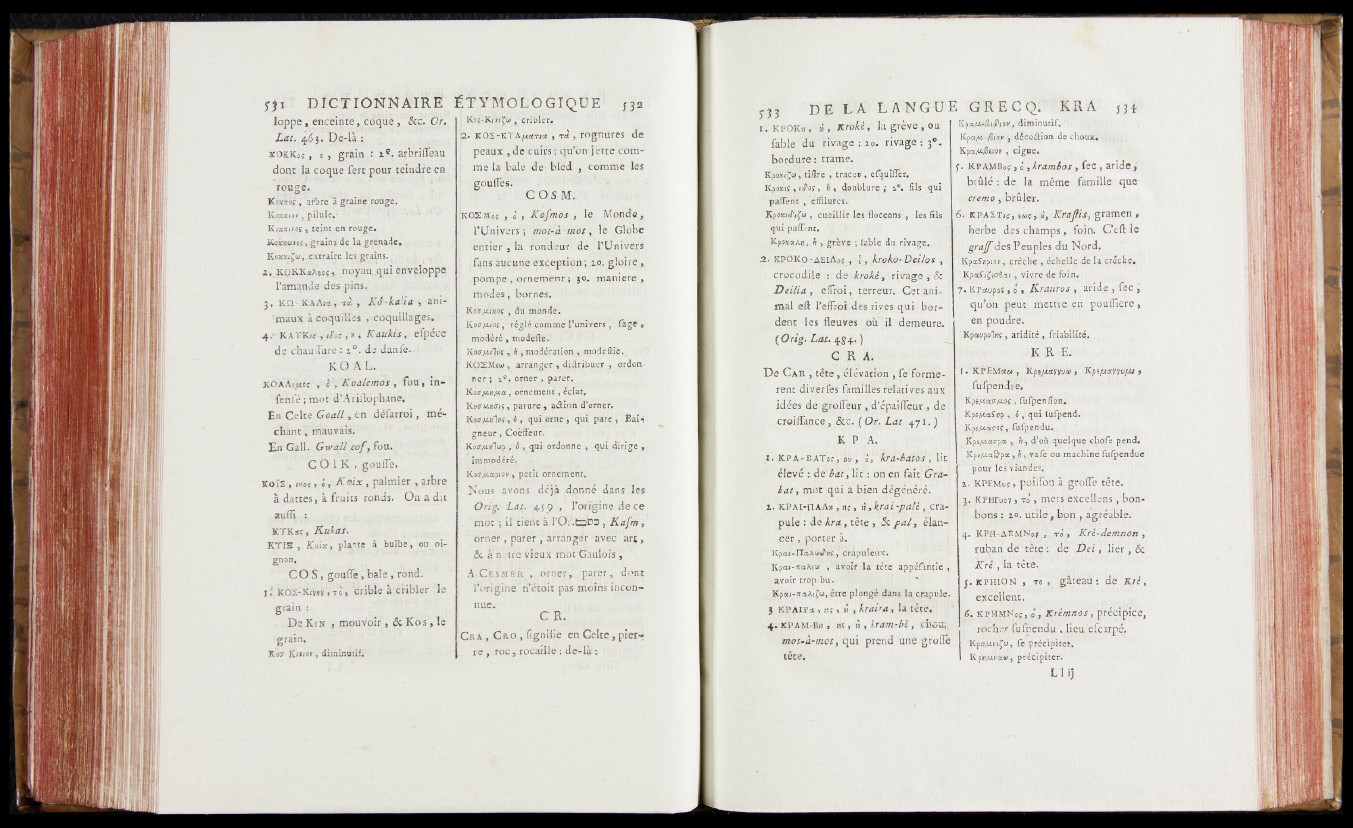 531 DICTIONNAIRE
loppe, enceinte, coque, &c. Or.
Lat. 463. De-là :
ΚΟΚΚος, ο, grain : 2°. arbriſſeau
dont la coque ſert pour teindre en
rouge.
Κοκκος, arbre à graine rouge.
Κοκκιον, pilule.
Κοκκινος, teint en rouge.
Κοκκωνες, grains de la grenade.
Κοκκιζω, extraire les grains.
2. ΚΟΚΚαλος, noyau qui enveloppe
l'amande des pins.
3. ΚΩ-ΚΑΛια, τα, Kô-kalia, ani-
maux à coquilles, coquillages.
4. ΚΑΥΚις, ιδος, η, Kaukis, eſpéce
de chauſſure : 2°. de danſe.
KOAL.
ΚΟΑΛεμος, ὁ, Koalemos, fou, in-
ſenſé ; mot d'Ariſtophane.
En Celte Goall, en déſarroi, mé-
chant, mauvais.
En Gall. Gwall cof, fou.
COIK, gouſſe.
ΚΟΙΞ, ικος, ὁ, Koix, palmier, arbre
à dattes, à fruits ronds. On a dit
auſſi :
ΚΥΚας, Kukas.
ΚΥΙΞ, Kuix, plante à bulbe, ou oi-
gnon.
COS, gouſſe, bale, rond.
1. ΚΟΣ-Κινον, το, crible à cribler le
grain :
De KIN, mouvoir, & Kos, le
grain.
Κοσ-Κινιον, diminutif.
ÉTYMOLOGIQUE 532
Κος-Κινιζω, cribler.
2. ΚΟΣ-ΚΥΛματια, τα, rognures de
peaux, de cuirs ; qu'on jette com-
me la bale de bled, comme les
gouſſes.
COSM.
ΚΟΣΜος, ὁ, Koſmos, le Monde,
l'Univers ; mot-à-mot, le Globe
entier, la rondeur de l'Univers
ſans aucune exception ; 2o. gloire,
pompe, ornement ; 3o. maniere,
modes, bornes.
Κοσμικος, du monde.
Κοσμιος, réglé comme l'univers, ſage,
modéré, modeſte.
Κοσμιοτης, ἡ, modération, modeſtie.
ΚΟΣΜεω, arranger, diſtribuer, ordon-
ner ; 2°. orner, parer.
Κοσμημα, ornement, éclat.
Κοσμησις, parure, action d'orner.
Κοσμητης, ὁ, qui orne, qui pare, Bai-
gneur, Coëffeur.
Κοσμητωρ, ὁ, qui ordonne, qui dirige,
immodéré.
Κοσμαριον, petit ornement.
Nous avons déjà donné dans les
Orig. Lat. 459, l'origine de ce
mot ; il tient à l'Or. קסם, Kaſm,
orner, parer, arranger avec art,
& à notre vieux mot Gaulois,
A-CESMER, orner, parer, dont
l'origine n'étoit pas moins incon-
nue.
CR.
CRA, CRO, ſignifie en Celte, pier-
re, roc, rocaille : de-là :
533 DE LA LANGUE
1. ΚΡΟΚη, ἡ, Kroké, la grève, ou
ſable du rivage : 2o. rivage : 3°.
bordure : trame.
Κροκιζω, tiſtre, tracer, eſquiſſer.
Κροκις, ιδος, ἡ, doublure ; 2°. fils qui
paſſent, effilures.
Κροκιδιζω, cueillir les floccons, les fils
qui paſſent.
Κροκαλη, ἡ, grève ; ſable du rivage.
2. ΚΡΟΚΟ-ΔΕΙΛος, ὁ, kroko-Deilos,
crocodile : de kroké, rivage, &
Deilia, effroi, terreur. Cet ani-
mal eſt l'effroi des rives qui bor-
dent les fleuves où il demeure.
(Orig. Lat. 484.)
CRA.
De CAR, tête, élévation, ſe forme-
rent diverſes familles relatives aux
idées de groſſeur, d'épaiſſeur, de
croiſſance, &c. (Or. Lat. 471.)
KPA.
1. ΚΡΑ-ΒΑΤος, ου, ὁ, kra-batos, lit
élevé : de bat, lit : on en fait Gra-
bat, mot qui a bien dégénéré.
2. ΚΡΑΙ-ΠΑΛη, ης, ἡ, krai-palé, cra-
pule : de kra, tête, & pal, élan-
cer, porter à.
Κραι-Παλωδης, crapuleux.
Κραι-παλαω, avoir la tête appéſantie,
avoir trop bu.
Κραι-παλιζω, être plongé dans la crapule.
3. ΚΡΑΙΡα, ας, ἡ, kraira, la tête.
4. ΚΡΑΜ-Βη, ης, ἡ, kram-bé, chou,
mot-à-mot, qui prend une groſſe
tête.
GRECQ. KRA 534
Κραμ-βιδιον, diminutif.
Κραμ-βιον, décoction de choux.
Κραμβειον, cigue.
5. ΚΡΑΜΒος, ὁ, krambos, ſec, aride,
brûlé : de la même famille que
cremo, brûler.
6. ΚΡΑΣΤις, εως, ἡ, Kraſtis, gramen,
herbe des champs, foin. C'eſt le
graſſ des Peuples du Nord.
Κραστηριον, créche, échelle de la créche.
Κραστιζεσθαι, vivre de foin.
7. ΚΡαυρος, ὁ, Krauros, aride, ſec,
qu'on peut mettre en pouſſiere,
en poudre.
Κραυροτης, aridité, friabilité.
KRE.
1. ΚΡΕΜαω, Κρεμαννυω, Κρεμαννυμι,
ſuſpendre.
Κρεμασμος, ſuſpenſion.
Κρεμαστηρ, ὁ, qui ſuſpend.
Κρεμαστος, ſuſpendu.
Κρεμαστρα, ἡ, d'où quelque choſe pend.
Κρεμαθρα, ἡ, vaſe ou machine ſuſpendue
pour les viandes.
2. ΚΡΕΜυς, poiſſon à groſſe tête.
3. ΚΡΗΓυον, το, mets excellens, bon-
bons : 2o. utile, bon, agréable.
4. ΚΡΗ-ΔΕΜΝον, το, Kré-demnon,
ruban de tête : de Dei, lier, &
Kré, la tête.
5. ΚΡΗΙΟΝ, το, gâteau : de Kré,
excellent.
6. ΚΡΗΜΝος, ὁ, Krémnos, précipice,
rocher ſuſpendu, lieu eſcarpé.
Κρημνιζω, ſe précipiter.
Κρημναω, précipiter.
Ll ij